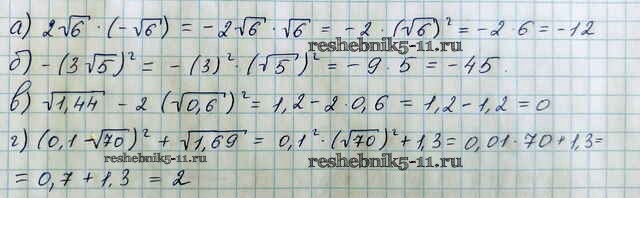 а) 2√6 · (-√6) = -2√6 · √6 = -2 · (√6)² = -2 · 6 = -12
reshebnik5-11.ru
б) -(3√5)² = -(3)² · (√5)² = -9 · 5 = -45.
в) √1,44 - 2(√0,6)² = 1,2 - 2 · 0,6 = 1,2 - 1,2 = 0
г) (0,1 √70)² + √1,69 = 0,1² · (√70)² + 1,3 = 0,01 · 70 + 1,3 =
reshebnik5-11.ru reshebnik5-11.ru
= 0,7 + 1,3 = 2